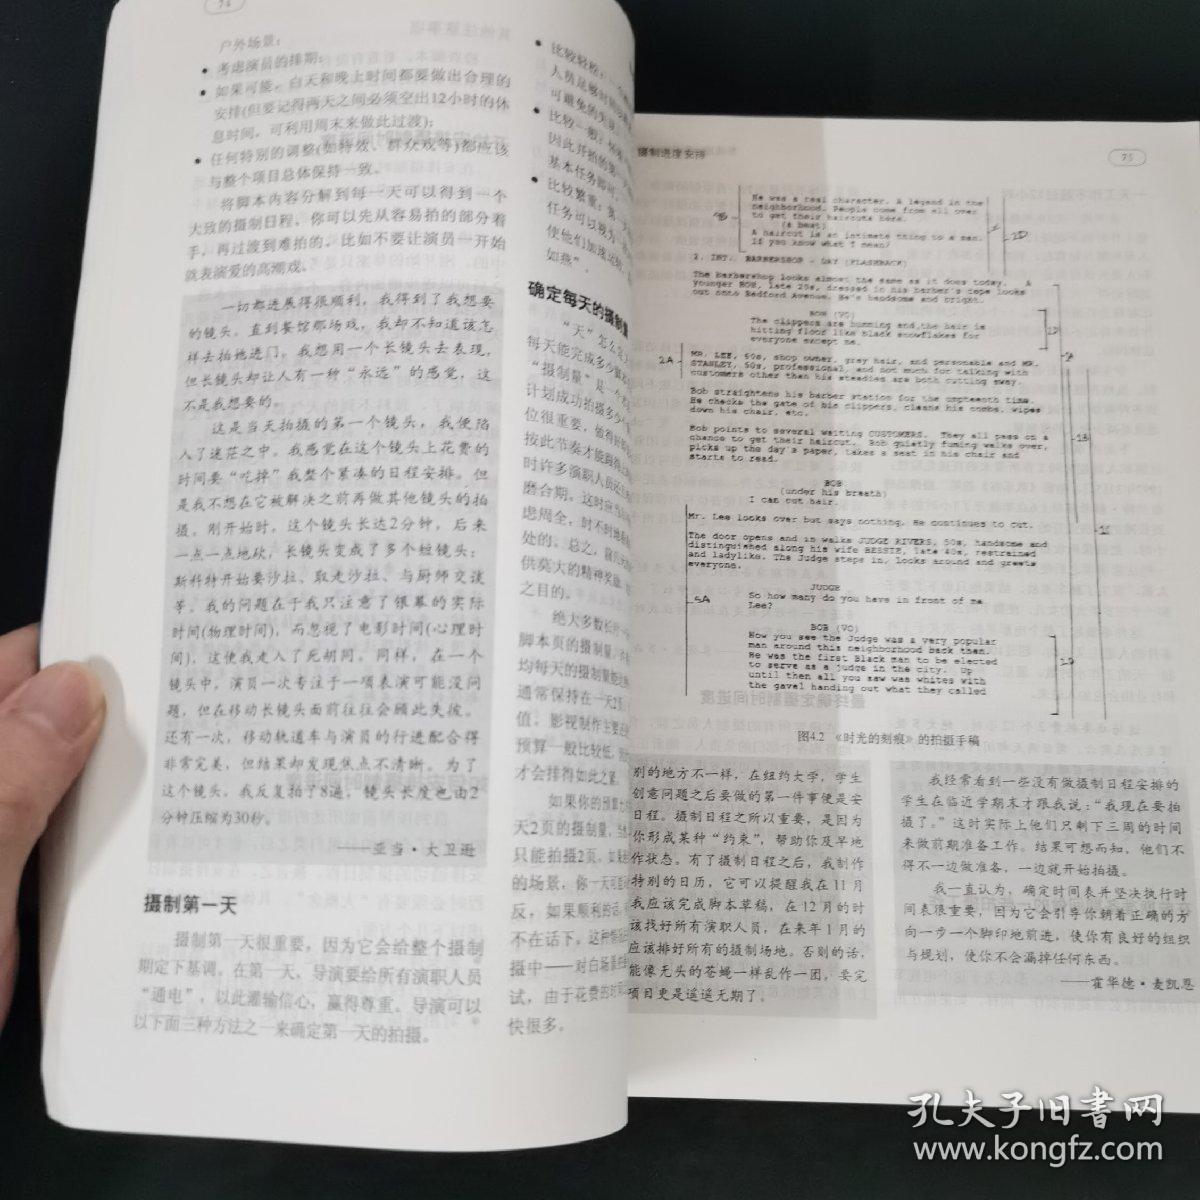 74
户外场景；
• 考虑演员的排期；
• 如果可能，白天和晚上时间都要做出合理的
安排(但要记得两天之间必须空出12小时的休
息时间，可利用周末来做此过渡)；
• 任何特别的调整(如特效、群众戏等)都应该
与整个项目总体保持一致。
将脚本内容分解到每一天可以得到一个
大致的摄制日程。你可以先从容易拍的部分着
手，再过渡到难拍的。比如不要让演员一开始
就表演爱的高潮戏。
一切都进展得很顺利，我得到了我想要
的镜头。直到餐馆那场戏，我却不知道该怎
样去拍她进门。我想用一个长镜头去表现，
但长镜头却让人有一种“永远”的感觉，这
不是我想要的。
这是当天拍摄的第一个镜头，我便陷
入了迷茫之中。我感觉在这个镜头上花费的
时间要“吃掉”我整个紧凑的日程安排。但
是我不想在它被解决之前再做其他镜头的拍
摄。刚开始时，这个镜头长达2分钟，后来
一点一点地砍，长镜头变成了多个短镜头：
斯科特开始要沙拉、取走沙拉、与厨师交谈
等。我的问题在于我只注意了银幕的实际
时间(物理时间)，而忽视了电影时间(心理时
间)，这使我走入了死胡同。同样，在一个
镜头中，演员一次专注于一项表演可能没问
题，但在移动长镜头面前往往会顾此失彼。
还有一次，移动轨道车与演员的行进配合得
非常完美，但结果却发现焦点不清晰。为了
这个镜头，我反复拍了8遍，镜头长度也由2
分钟压缩为30秒。
——亚当·大卫逊
摄制第一天
摄制第一天很重要，因为它会给整个摄制
期定下基调。在第一天，导演要给所有演职人员
“通电”，以此灌输信心，赢得尊重。导演可以
以下面三种方法之一来确定第一天的拍摄。
• 比较轻松：
人员足够
可避免的失
• 比较一般：
因此开拍的第一
基本任务即可
• 比较繁重：第一
任务可以较为
使他们加速运转
如燕”。
确定每天的摄制量
“天”怎么
每天能完成多少
“摄制量”是一
计划成功拍摄多少
位很重要，值得
按此节奏才能
时许多演职人员
磨合期。这时应
虑周全，时不时地
处的。总之，
供莫大的精神奖励
之目的。
绝大多数长片
脚本页的摄制量，
均每天的摄制量
通常保持在一天2
值。影视制作主要
预算一般比较低，
才会排得如此之紧
如果你的预算
天2页的摄制量，
只能拍摄2页。如果
的场景，你一天可
反，如果顺利的话，
不在话下。这种情
摄中——对白场景
试，由于花费的
快很多。
摄制进度安排
75
He was a real character. A legend in the
neighborhood. People come from all over
to get their haircuts here.
(a beat)
A haircut is an intimate thing to a man,
if you know what I mean?
2D
2. INT. BARBERSHOP - DAY (FLASHBACK)
The barbershop looks almost the same as it does today. A
younger BOB, late 20s, dressed in his barber's cape looks
out onto Bedford Avenue. He's handsome and bright.
BOB (VO)
The clippers are humming and the hair is
hitting floor like black snowflakes for
everyone except me.
2A
MR. LEE, 60s, shop owner, gray hair, and personable and MR.
STANLEY, 50s, professional, and not much for talking with
customers other than his steadies are both cutting away.
Bob straightens his barber station for the umpteenth time.
He checks the gate of his clippers, cleans his combs, wipes
down his chair, etc.
Bob points to several waiting CUSTOMERS. They all pass on a
chance to get their haircut. Bob quietly fuming walks over,
picks up the day's paper, takes a seat in his chair and
starts to read.
BOB
(under his breath)
I can cut hair.
Mr. Lee looks over but says nothing. He continues to cut.
The door opens and in walks JUDGE RIVERS, 50s, handsome and
distinguished along his wife BESSIE, late 40s, restrained
and ladylike. The Judge steps in, looks around and greets
everyone.
5A
JUDGE
So how many do you have in front of me
Lee?
BOB (VO)
Now you see the Judge was a very popular
man around this neighborhood back then.
He was the first Black man to be elected
to serve as a judge in the city. Up
until then all you saw was whites with
the gavel handing out what they called
图4.2 《时光的刻痕》的拍摄手稿
别的地方不一样，在纽约大学，学生
创意问题之后要做的第一件事便是安
日程。摄制日程之所以重要，是因为
你形成某种“约束”，帮助你及早地
作状态。有了摄制日程之后，我制作
特别的日历，它可以提醒我在11月
我应该完成脚本草稿，在12月的时
该找好所有演职人员，在来年1月的
应该排好所有的摄制场地。否则的话，
能像无头的苍蝇一样乱作一团，要完
项目更是遥遥无期了。
我经常看到一些没有做摄制日程安排的
学生在临近学期末才跟我说：“我现在要拍
摄了。”这时实际上他们只剩下三周的时间
来做前期准备工作。结果可想而知，他们不
得不一边做准备，一边就开始拍摄。
我一直认为，确定时间表并坚决执行时
间表很重要，因为它会引导你朝着正确的方
向一步一个脚印地前进，使你有良好的组织
与规划，使你不会漏掉任何东西。
——霍华德·麦凯恩
孔夫子旧书网
www.kongfz.com